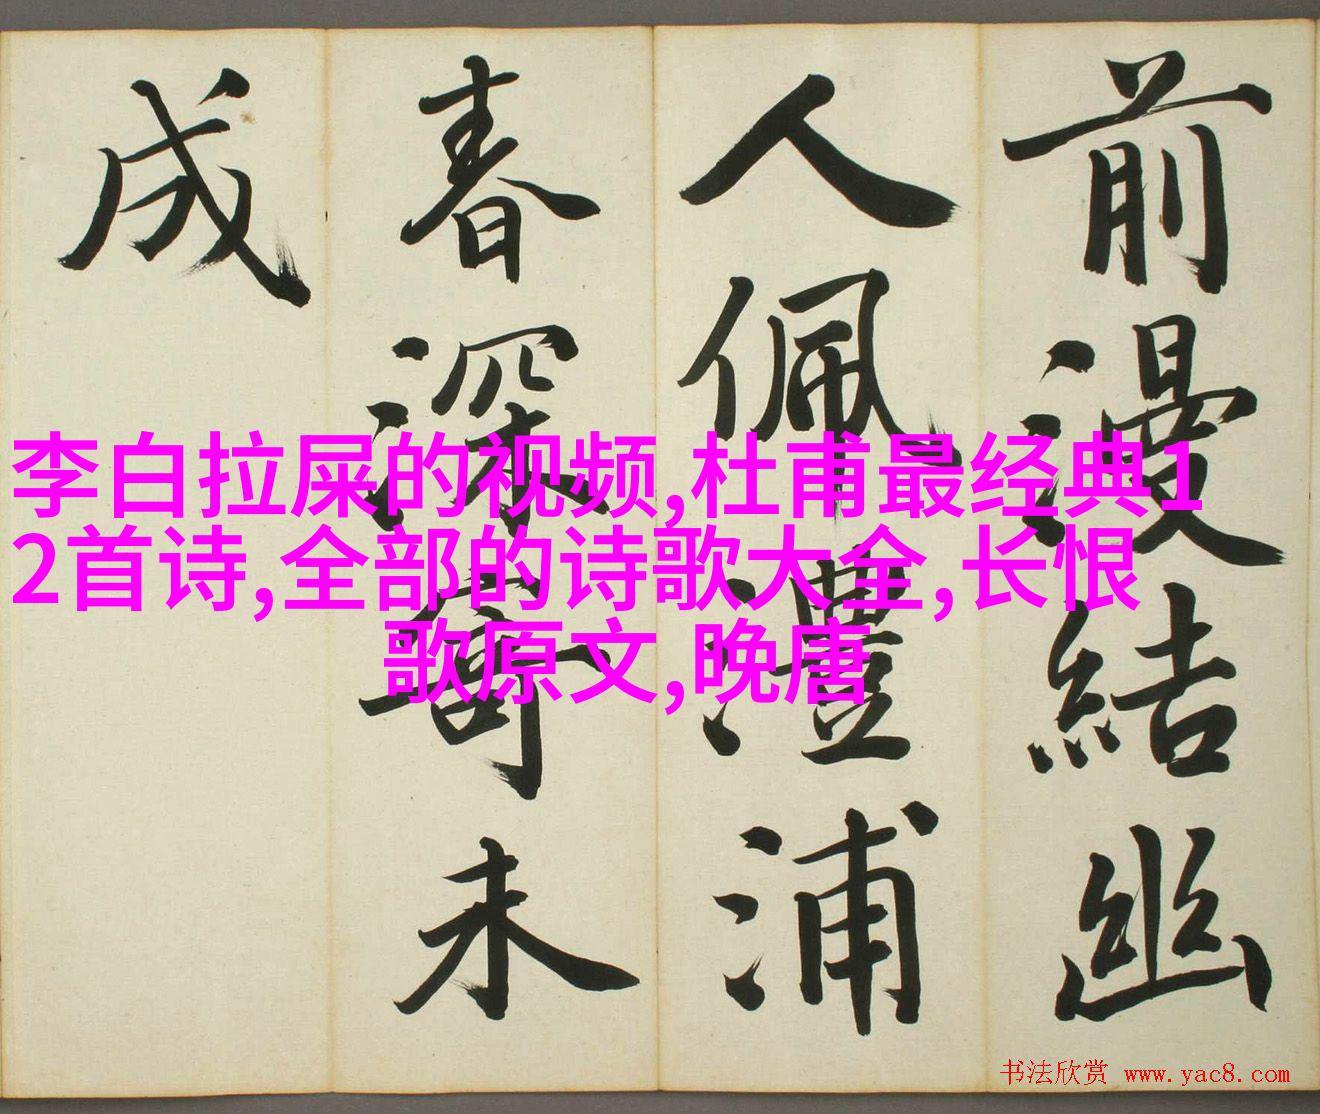 前漫結幽
人佩澧浦
春深寄未
成
李白拉屎的视频,杜甫最经典1
2首诗,全部的诗歌大全,长恨
歌原文,晚唐
书法欣赏 www.yac8.com